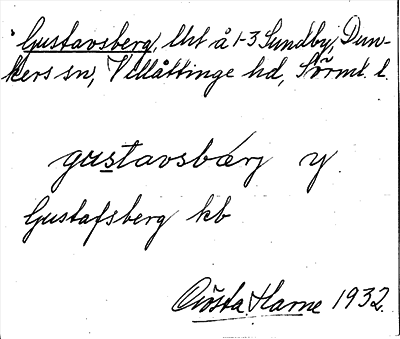 Gustavsberg, lht å 1-3 Sundby, Dun-
kers sn, Villåttinge hd, Sörml. l.
gustavsbárj y
Gustafsberg kb
Gösta Harne 1932.